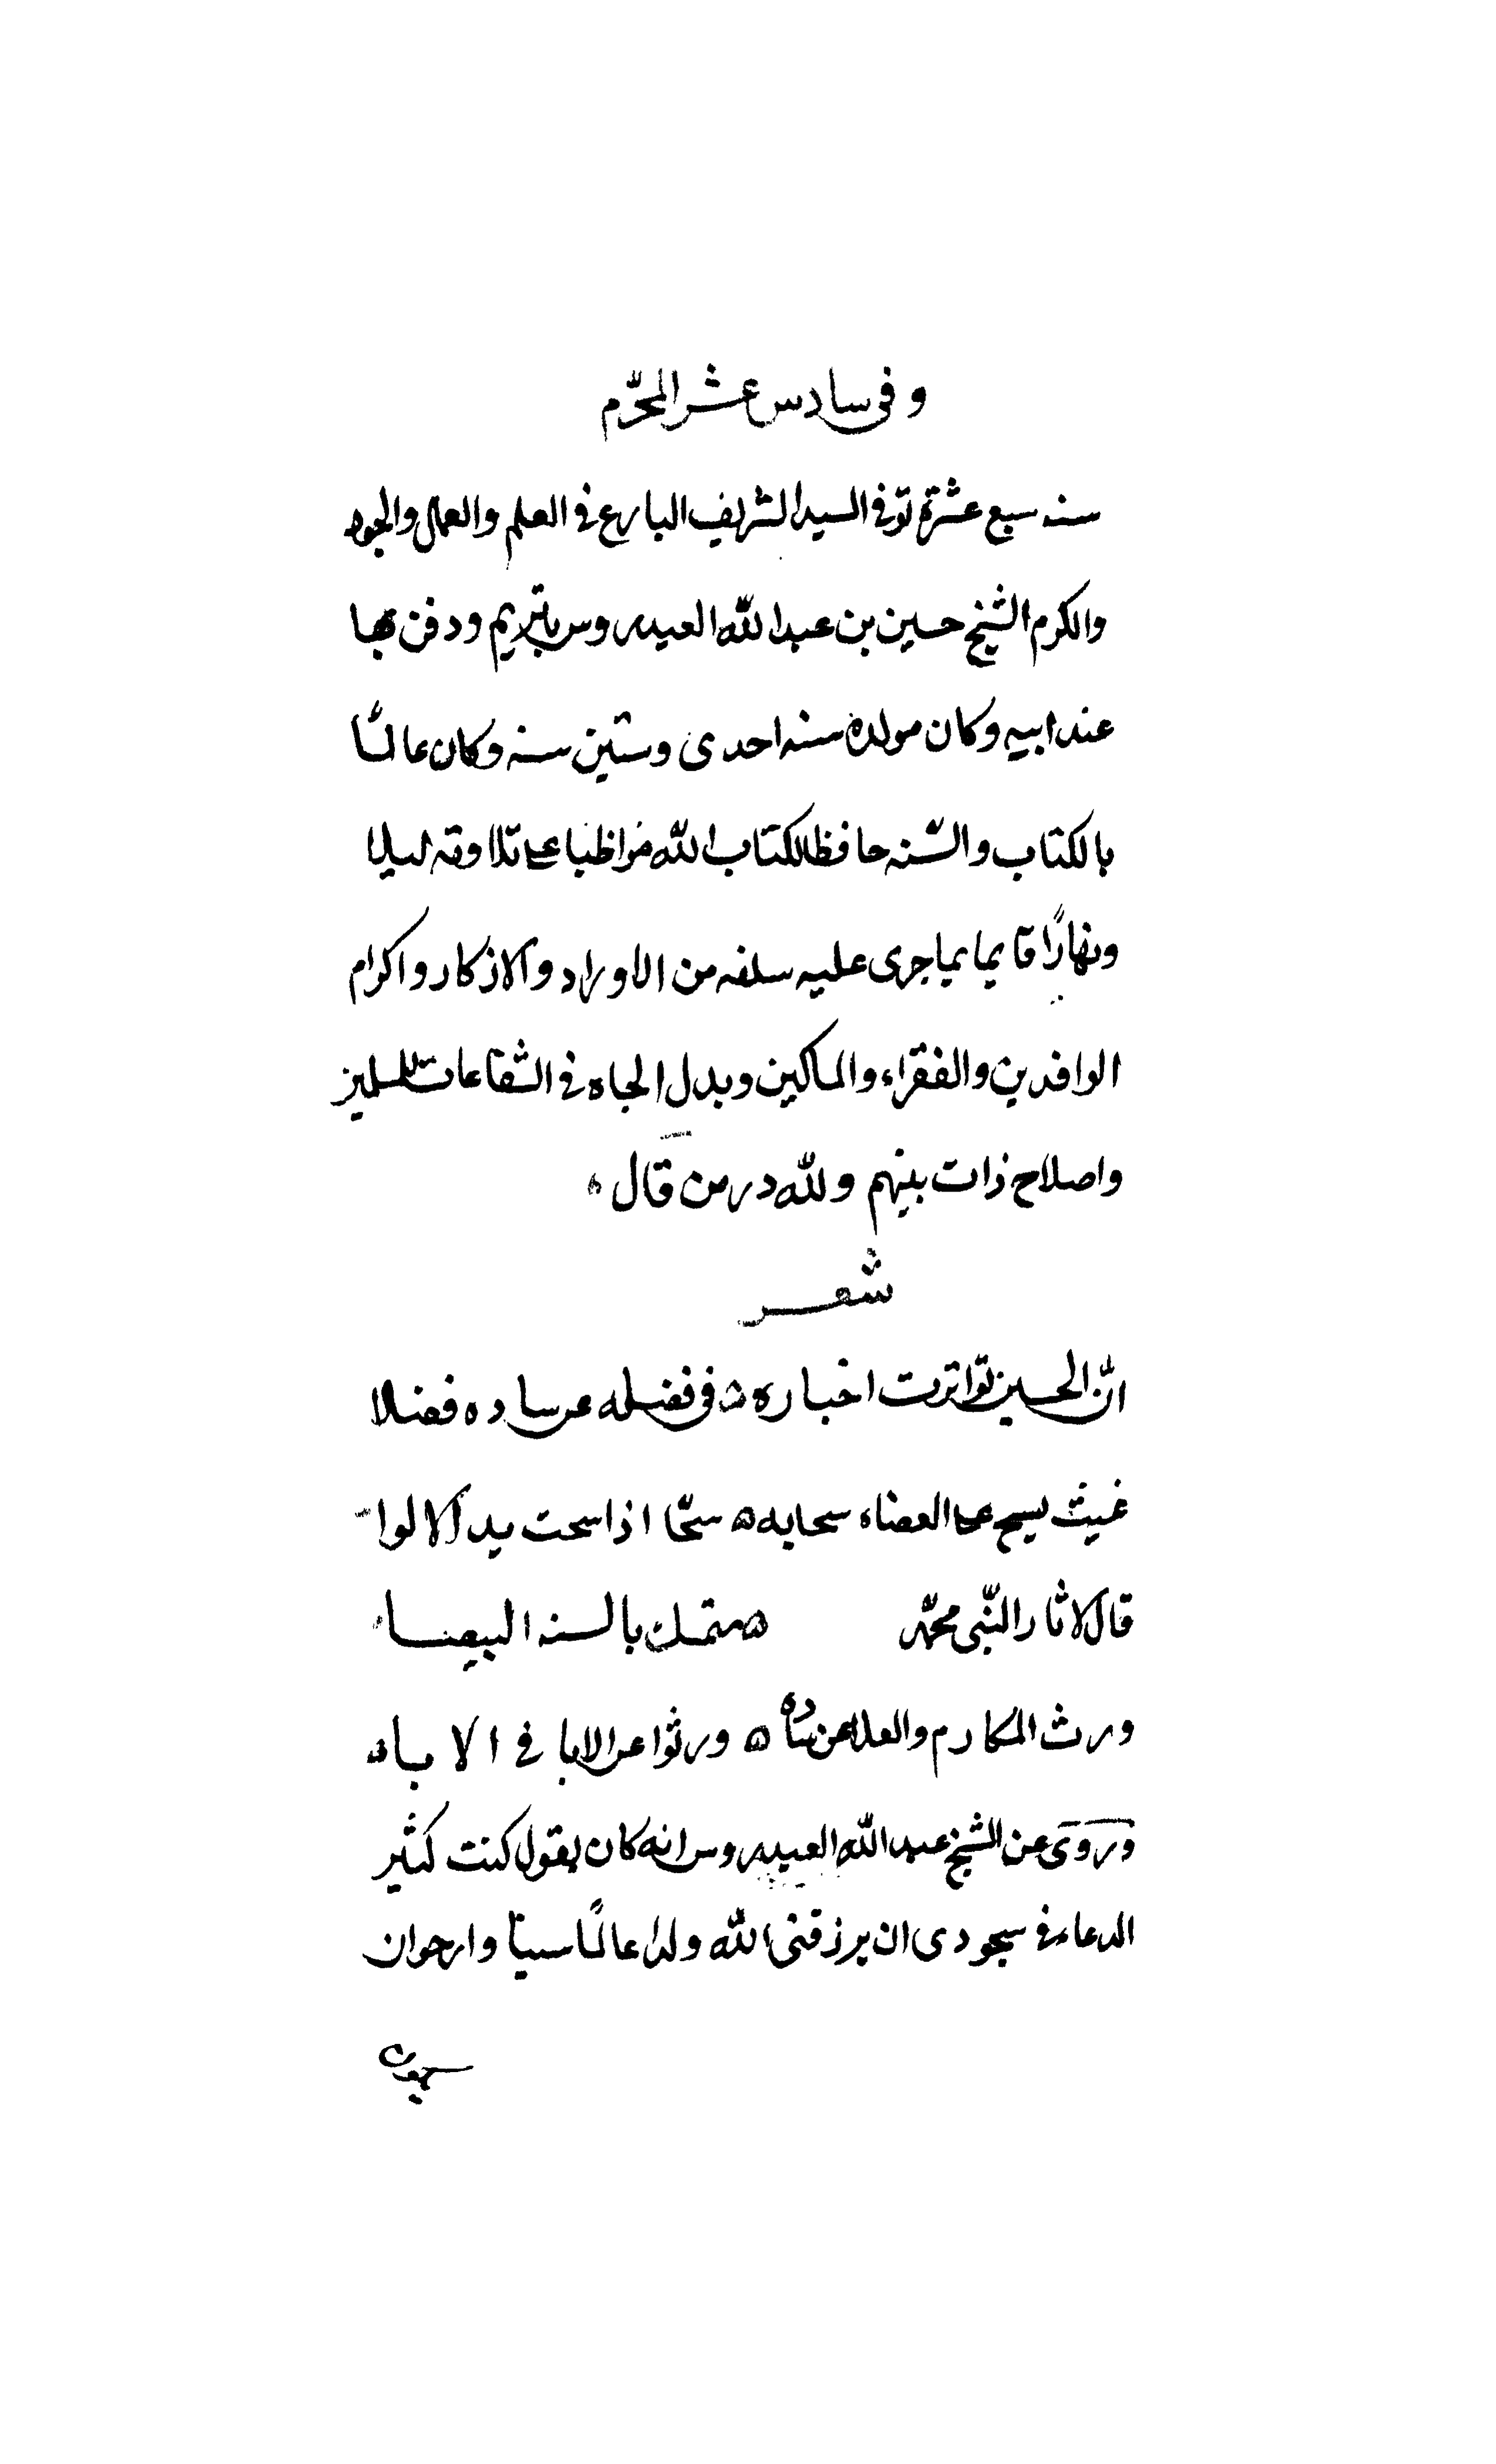 وفى سادس عشر المحرّم
سنه سبع عشرة توّفى السيد الشريف البارع فى العلم والعمل والجود
والكرم الشيخ حسين بن عبد الله العيدروس بتريم ودفن بها
عند ابيه وكان مولده سنه احدى وستين سنه وكان عالمًا
بالكتاب والسّنه حافظا لكتاب الله مواظبا على تلاوته ليلا
ونهارًا قايما بما جرى عليه سلفه من الاوراد والاذكار واكرام
الوافدين والفقراء والمساكين وبدل الجاه فى الشفاعات للمسلمين
واصلاح ذات بينهم ولله در من قال ه
شعر
انّ الحسين تواترت اخباره ه فى فضله عن ساده فضلا
غيث يسيح على العضاه سحابه ه سحّا اذا سحت يد الالوا
قال لاثار النّبى محمّد ه متمسك بالسنه البيضاء
ورث المكارم والعلا عن ساده ه ورثوا عن الابا فى الاباء
وروى عن الشيخ عبد الله العيدروس انه كان يقول كنت كثير
الدعاء فى سجودى ان يرزقنى الله ولدا عالمًا سنيا وارجوان